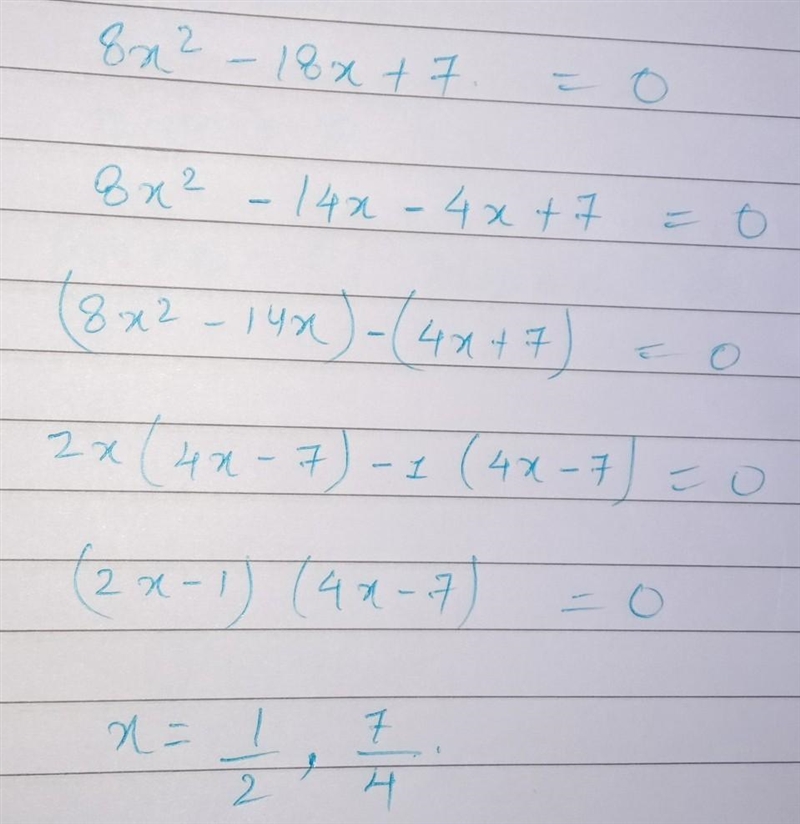 8x² - 18x + 7. = 0
8x² - 14x - 4x + 7 = 0
(8x² - 14x) - (4x + 7) = 0
2x (4x - 7) - 1 (4x - 7) = 0
(2x - 1) (4x - 7) = 0
x = 1/2 , 7/4 .